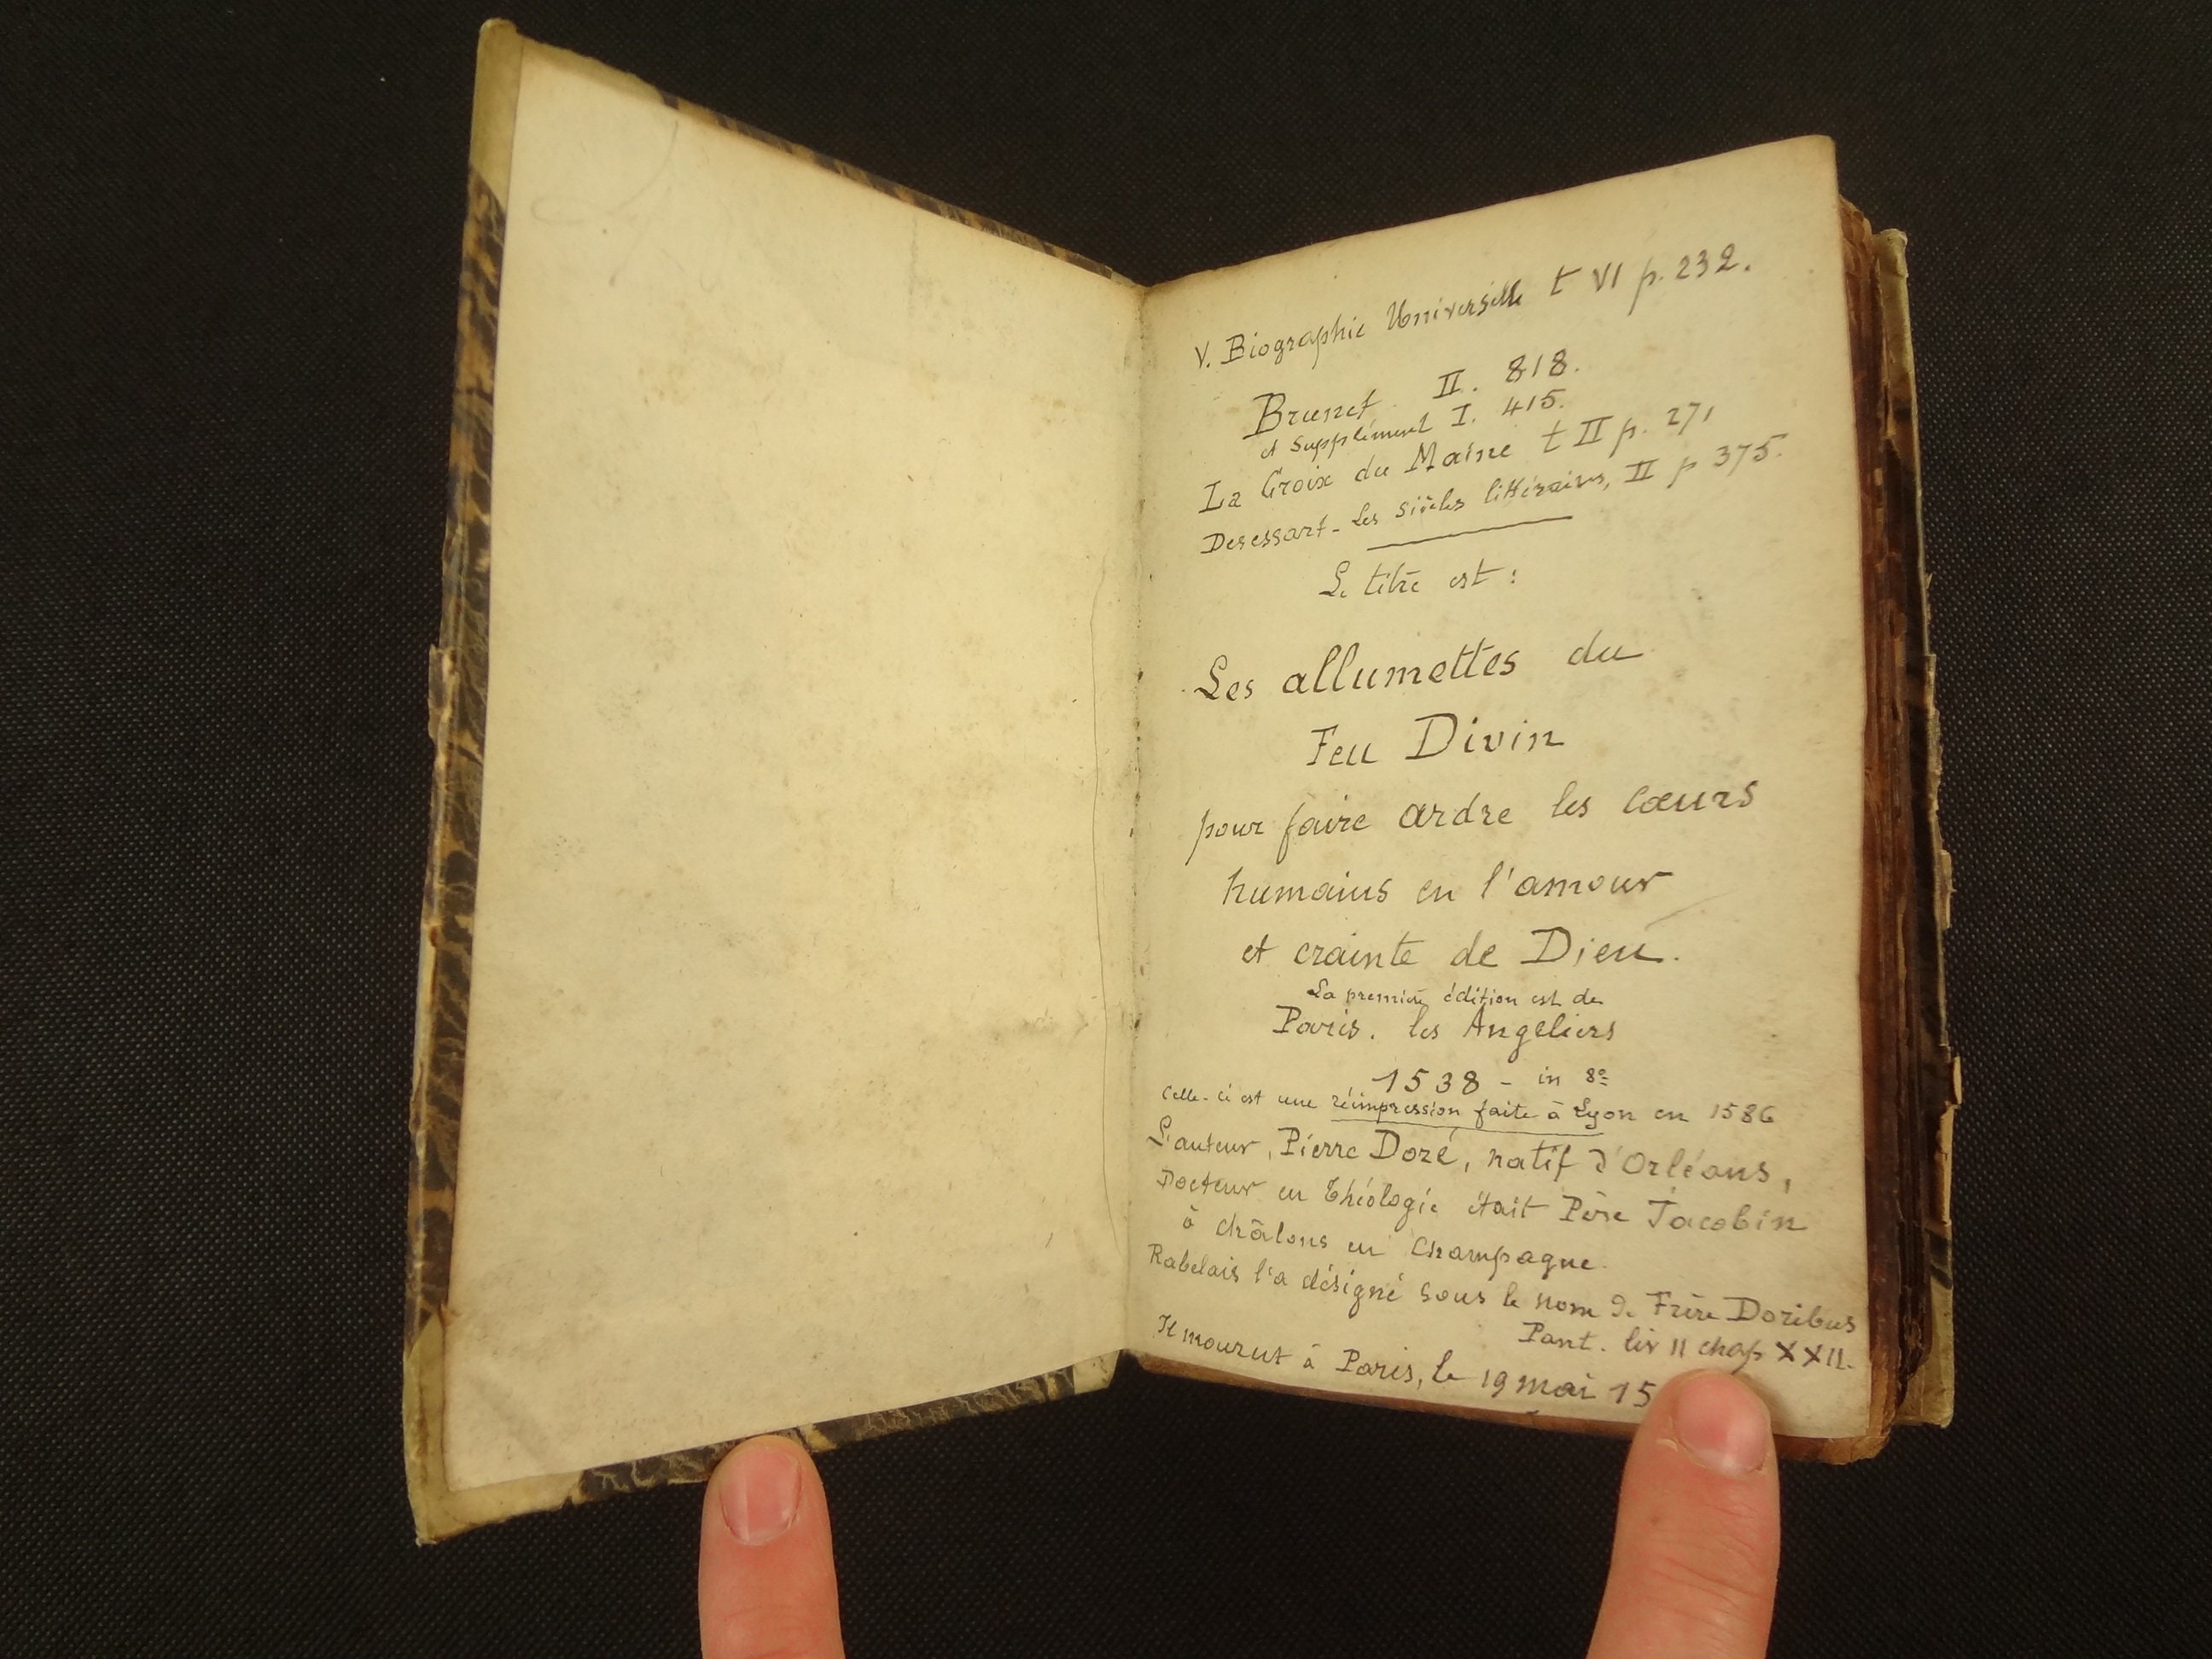 V. Biographie Universelle t VI p. 232.
Brunet II. 818.
et Supplément I. 415.
La Croix du Maine t II p. 27,
Desessart - Les Siècles littéraires, II p 375.
Le titre est :
Les allumettes du
Feu Divin
pour faire ardre les cœurs
humains en l'amour
et crainte de Dieu.
La première édition est de
Paris. les Angeliers
1538 - in 8º
Celle-ci est une réimpression faite à Lyon en 1586
L'auteur, Pierre Doré, natif d'Orléans,
Docteur en Théologie était Père Jacobin
à châlons en Champagne.
Rabelais l'a désigné sous le nom de Frère Doribus
Pant. liv II chap XXII.
Il mourut à Paris, le 19 mai 15